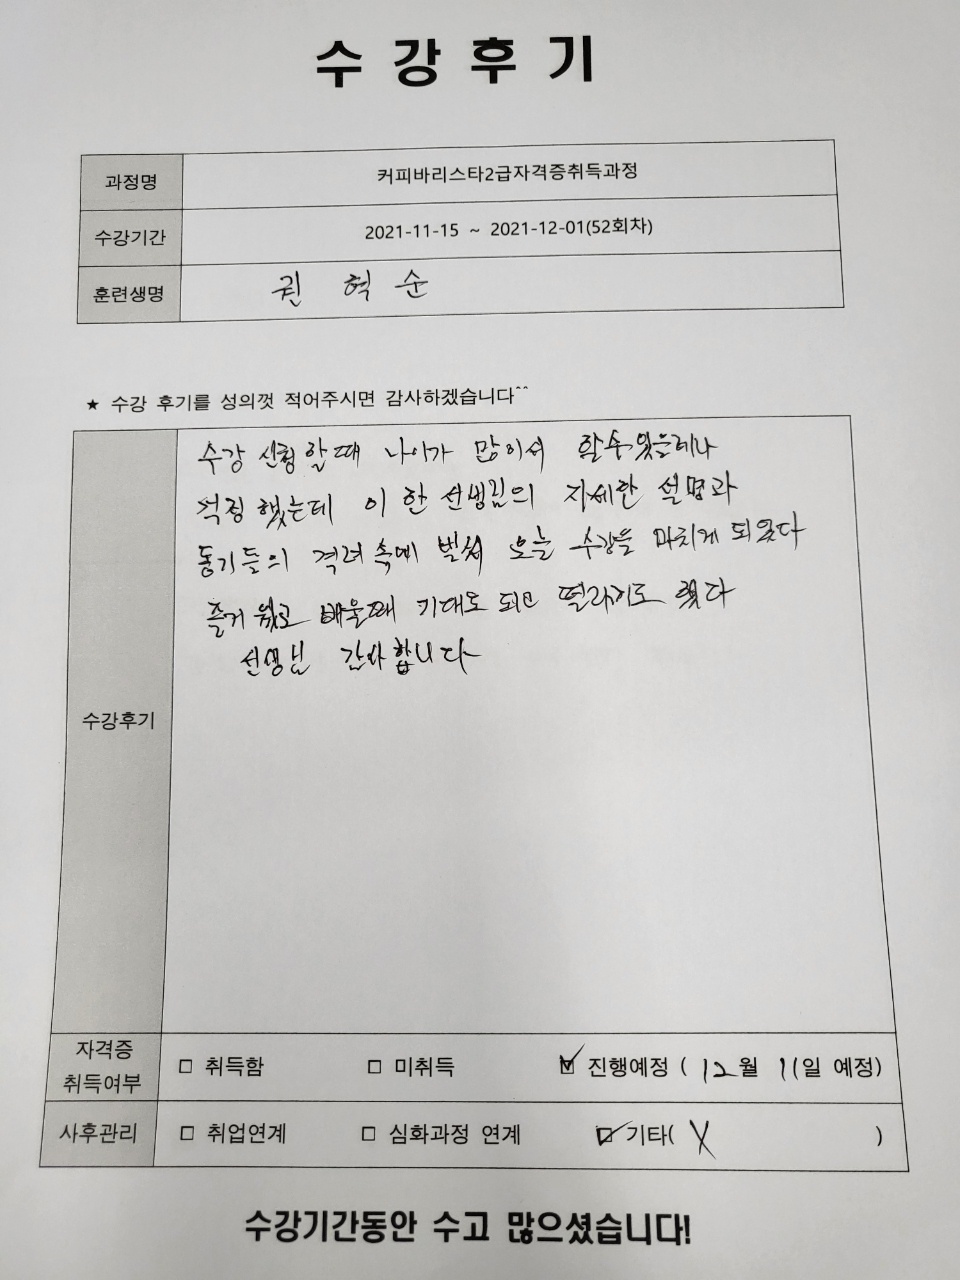 수 강 후 기
과정명 커피바리스타2급자격증취득과정
수강기간 2021-11-15 ~ 2021-12-01(52회차)
훈련생명 권 혁 순
★ 수강 후기를 성의껏 적어주시면 감사하겠습니다^^
수강후기
수강 신청 할때 나이가 많아서 할수있을레나
걱정 했는데 이 한 선생님의 자세한 설명과
동기들의 격려 속에 벌써 오늘 수강을 마치게 되었다
즐거 웠고 배울때 기대도 되고 떨리기도 했다
선생님 감사합니다
자격증
취득여부 □ 취득함 □ 미취득 ☑ 진행예정 ( 12월 11일 예정)
사후관리 □ 취업연계 □ 심화과정 연계 ☑ 기타( X )
수강기간동안 수고 많으셨습니다!